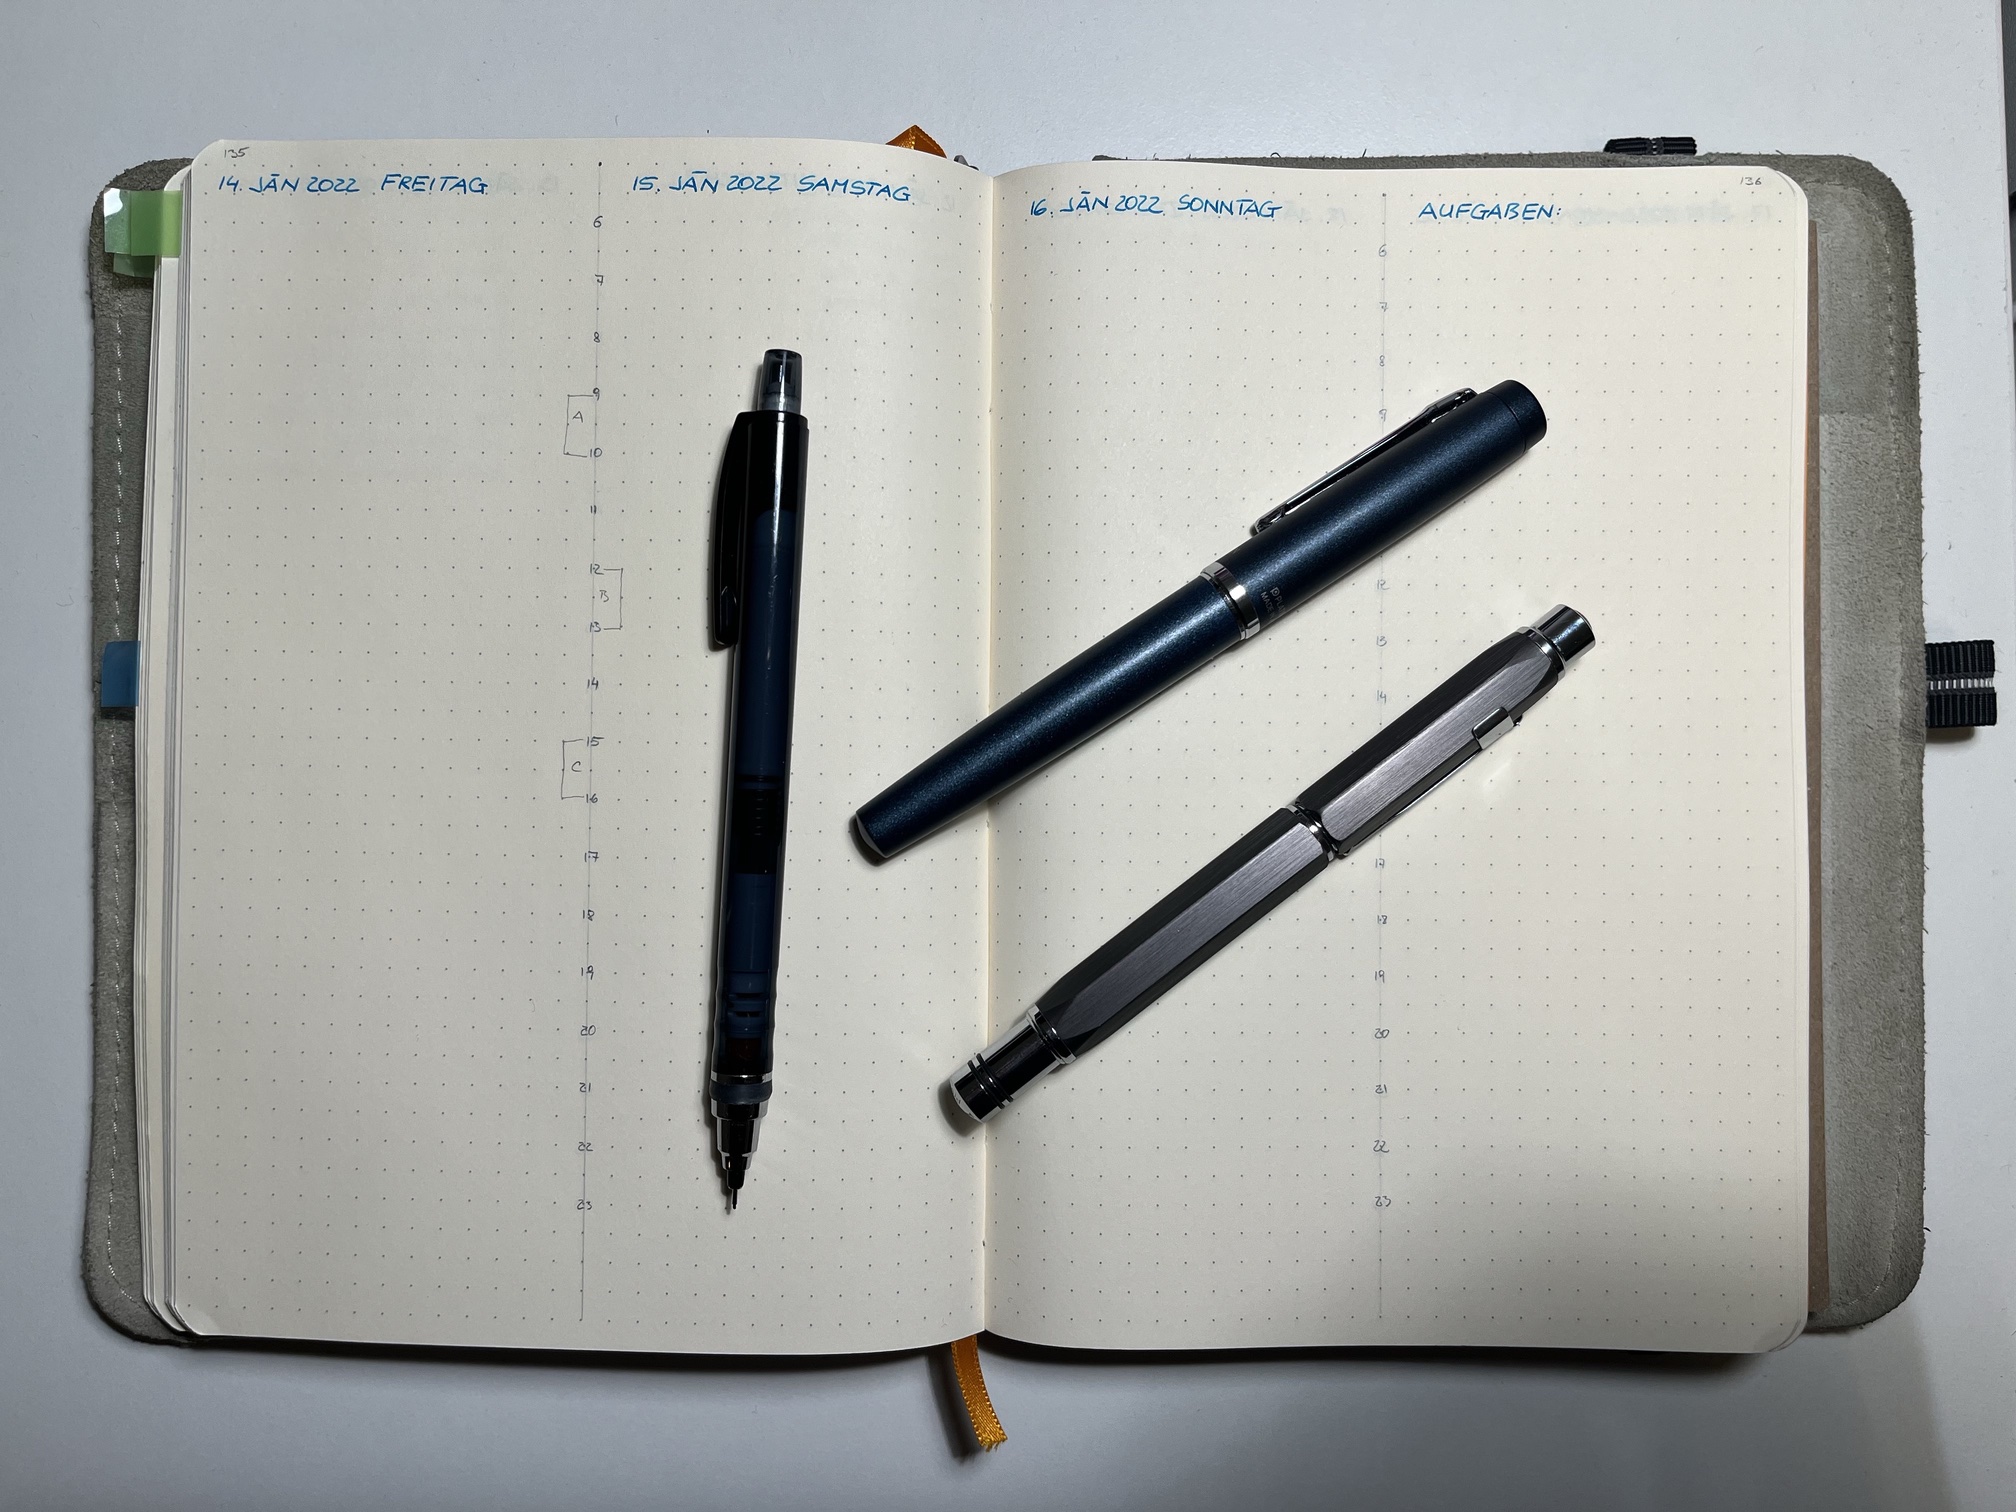 135
14. JÄN 2022 FREITAG
15. JÄN 2022 SAMSTAG
6
7
8
9
A
10
11
12
B
13
14
15
C
16
17
18
19
20
21
22
23
136
16. JÄN 2022 SONNTAG
AUFGABEN:
6
7
8
9
12
13
14
17
18
19
20
21
22
23